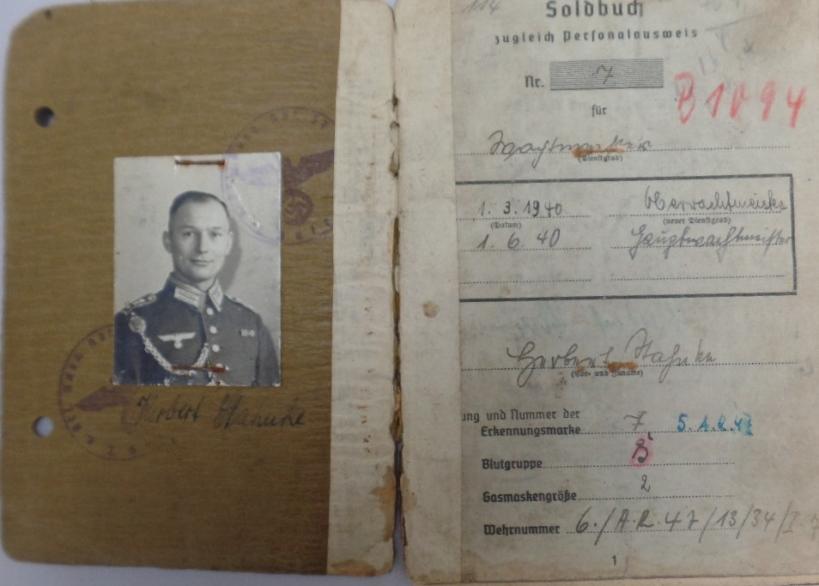 Herbert
114
Soldbuch
zugleich Personalausweis
Nr. 7
B 1094
für
Wachtmeister
(Dienstgrad)
1.3.1940 Oberwachtmeister
(Datum) (neuer Dienstgrad)
1.6.40 Hauptwachtmeister
Herbert
(Vor- und Zuname)
ung und Nummer der
Erkennungsmarke 7
Blutgruppe B
Gasmaskengröße 2
Wehrnummer 6./A.R.47/13/34/I
1